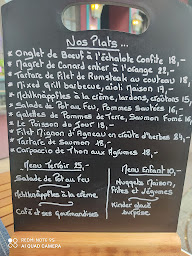 Nos Plats ...
* Onglet de Boeuf à l'échalote Confite 18,-
* Magret de Canard entier à l'orange 22,-
* Tartare de Filet de Rumsteak au couteau 18,-
* Mixed Grill barbecue, aïoli maison 19,-
* Mehlknäpfles à la crème, lardons, croûtons 15,-
* Salade de Pot au Feu, Pommes Sautées 16,-
* Galettes de Pommes de Terre, Saumon Fumé 16,-
* Le Poisson du Jour 18,-
* Filet Mignon d'Agneau en croûte d'herbes 24,-
* Tartare de Saumon 18,-
* Carpaccio de Thon aux Agrumes 18,-
Menu Terroir 25,-
Salade de Pot au feu
Mehlknäpfles à la crème
Café et ses gourmandises
Menu Enfant 10,-
Nuggets Maison,
Frites et légumes
Kinder glacé
surprise
REDMI NOTE 9S
AI QUAD CAMERA